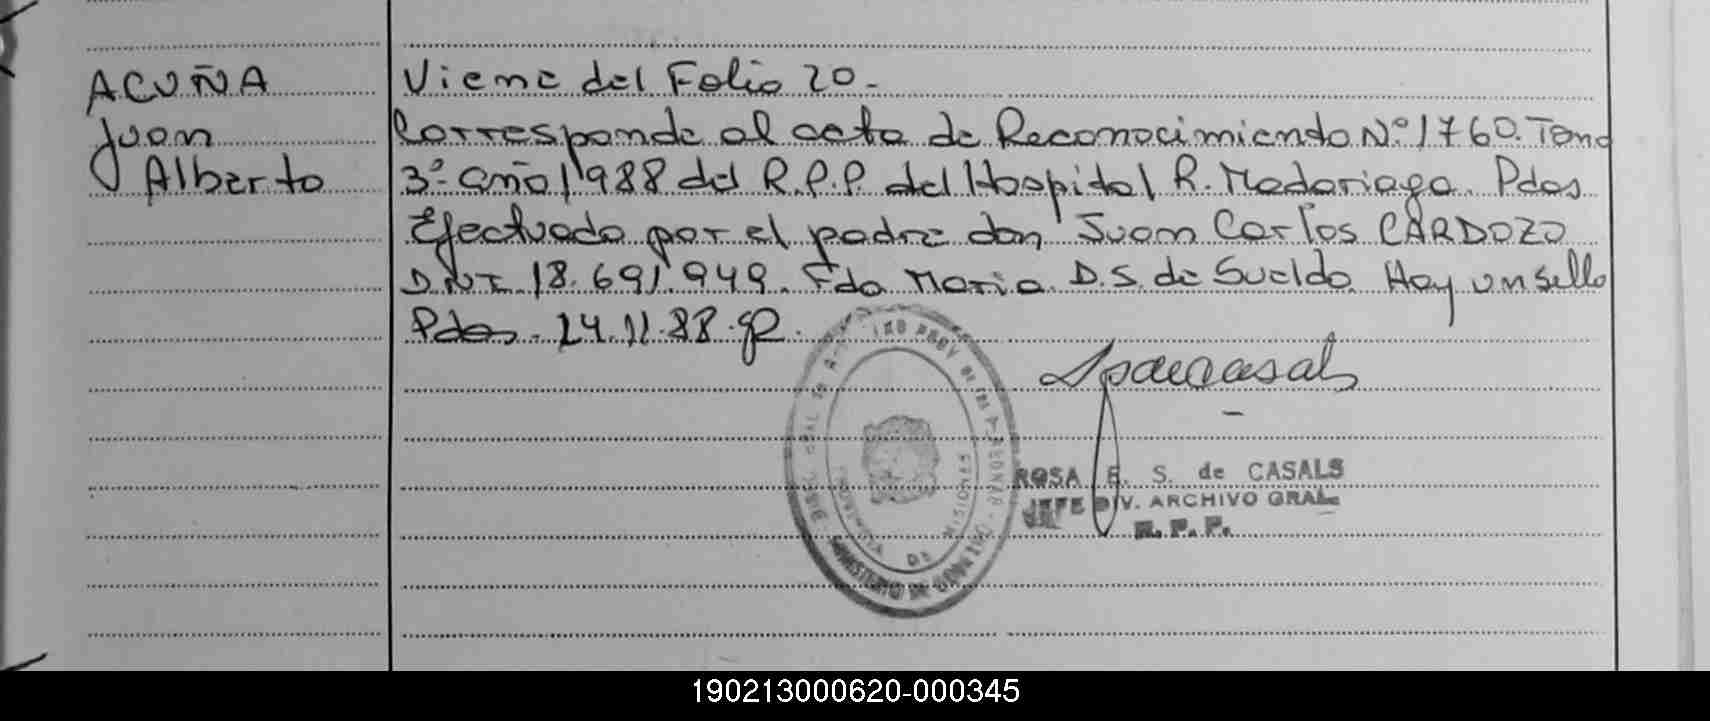 ACUÑA
Juan
Alberto
Viene del Folio 20.-
Corresponde al acta de Reconocimiento Nº 1760. Tomo
3º año 1988 del R.P.P. del Hospital R. Madariaga. Pdas
Efectuado por el padre don Juan Carlos CARDOZO
D.N.I. 18.691.949. Fdo Maria D.S. de Sueldo. Hay un sello
Pdas. 24.11.88.
ROSA E. S. de CASALS
JEFE DIV. ARCHIVO GRAL.
R. P. P.
PROVINCIA DE MISIONES
MINISTERIO DE GOBIERNO
190213000620-000345